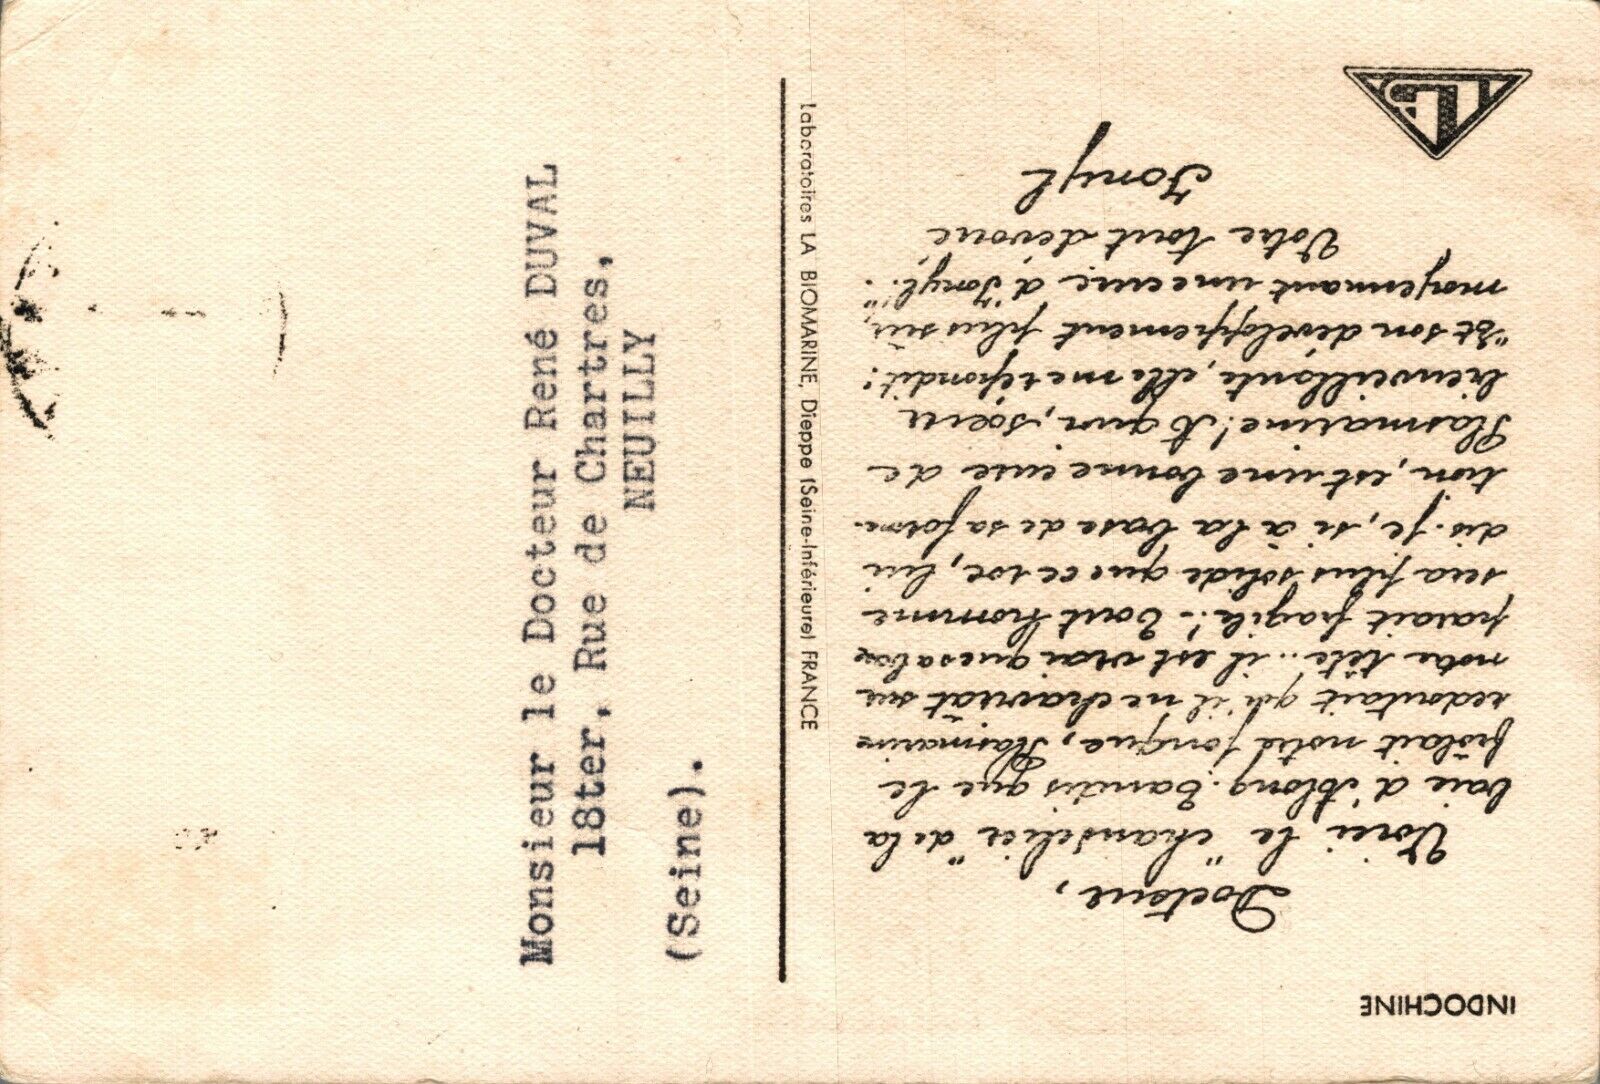 INDOCHINE
Docteur,
Voici le "chandelier" de la
baie d'Along. Tandis que le
frôlait notre jonque, Plasmarine
redoutait qu'il ne chavirât sur
notre tête... il est vrai que sa base
paraît fragile! - Tout homme
sera plus solide que ce roc, lui
dis-je, si à la base de sa forma-
tion, est une bonne cure de
Plasmarine! A quoi, sœur
bienveillante, elle me répondit:
"Et son développement plus sûr,
moyennant une cure d'Ionyl!".
Votre tout dévoué
Ionyl
Laboratoires LA BIOMARINE, Dieppe (Seine-Inférieure) FRANCE
Monsieur le Docteur René DUVAL
18ter, Rue de Chartres,
NEUILLY
(Seine).